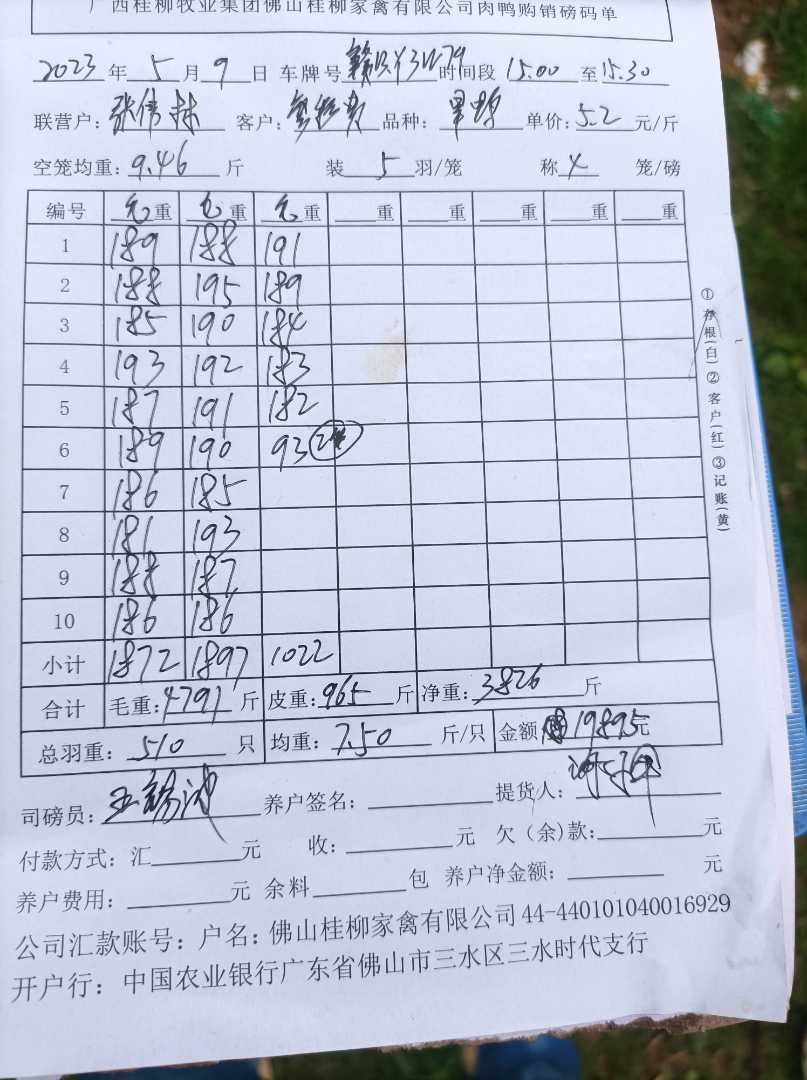 广西桂柳牧业集团佛山桂柳家禽有限公司肉鸭购销磅码单
2023 年 5 月 9 日 车牌号 时间段 15.00 至 15.30
联营户: 张伟林 客户: 品种: 单价: 5.2 元/斤
空笼均重: 9.46 斤 装 5 羽/笼 称 4 笼/磅
编号 毛重 毛重 毛重 重 重 重 重 重
1 189 188 191
2 188 195 189
3 185 190 184
4 193 192 183
5 187 191 182
6 189 190 93
7 186 185
8 181 193
9 188 187
10 186 186
小计 1872 1897 1022
合计 毛重: 4791 斤 皮重: 965 斤 净重: 3826 斤
总羽重: 510 只 均重: 7.50 斤/只 金额 19895 元
司磅员: 养户签名: 提货人:
付款方式: 汇 元 收: 元 欠(余)款: 元
养户费用: 元 余料 包 养户净金额: 元
公司汇款账号: 户名: 佛山桂柳家禽有限公司 44-440101040016929
开户行: 中国农业银行广东省佛山市三水区三水时代支行
①存根(白)②客户(红)③记账(黄)